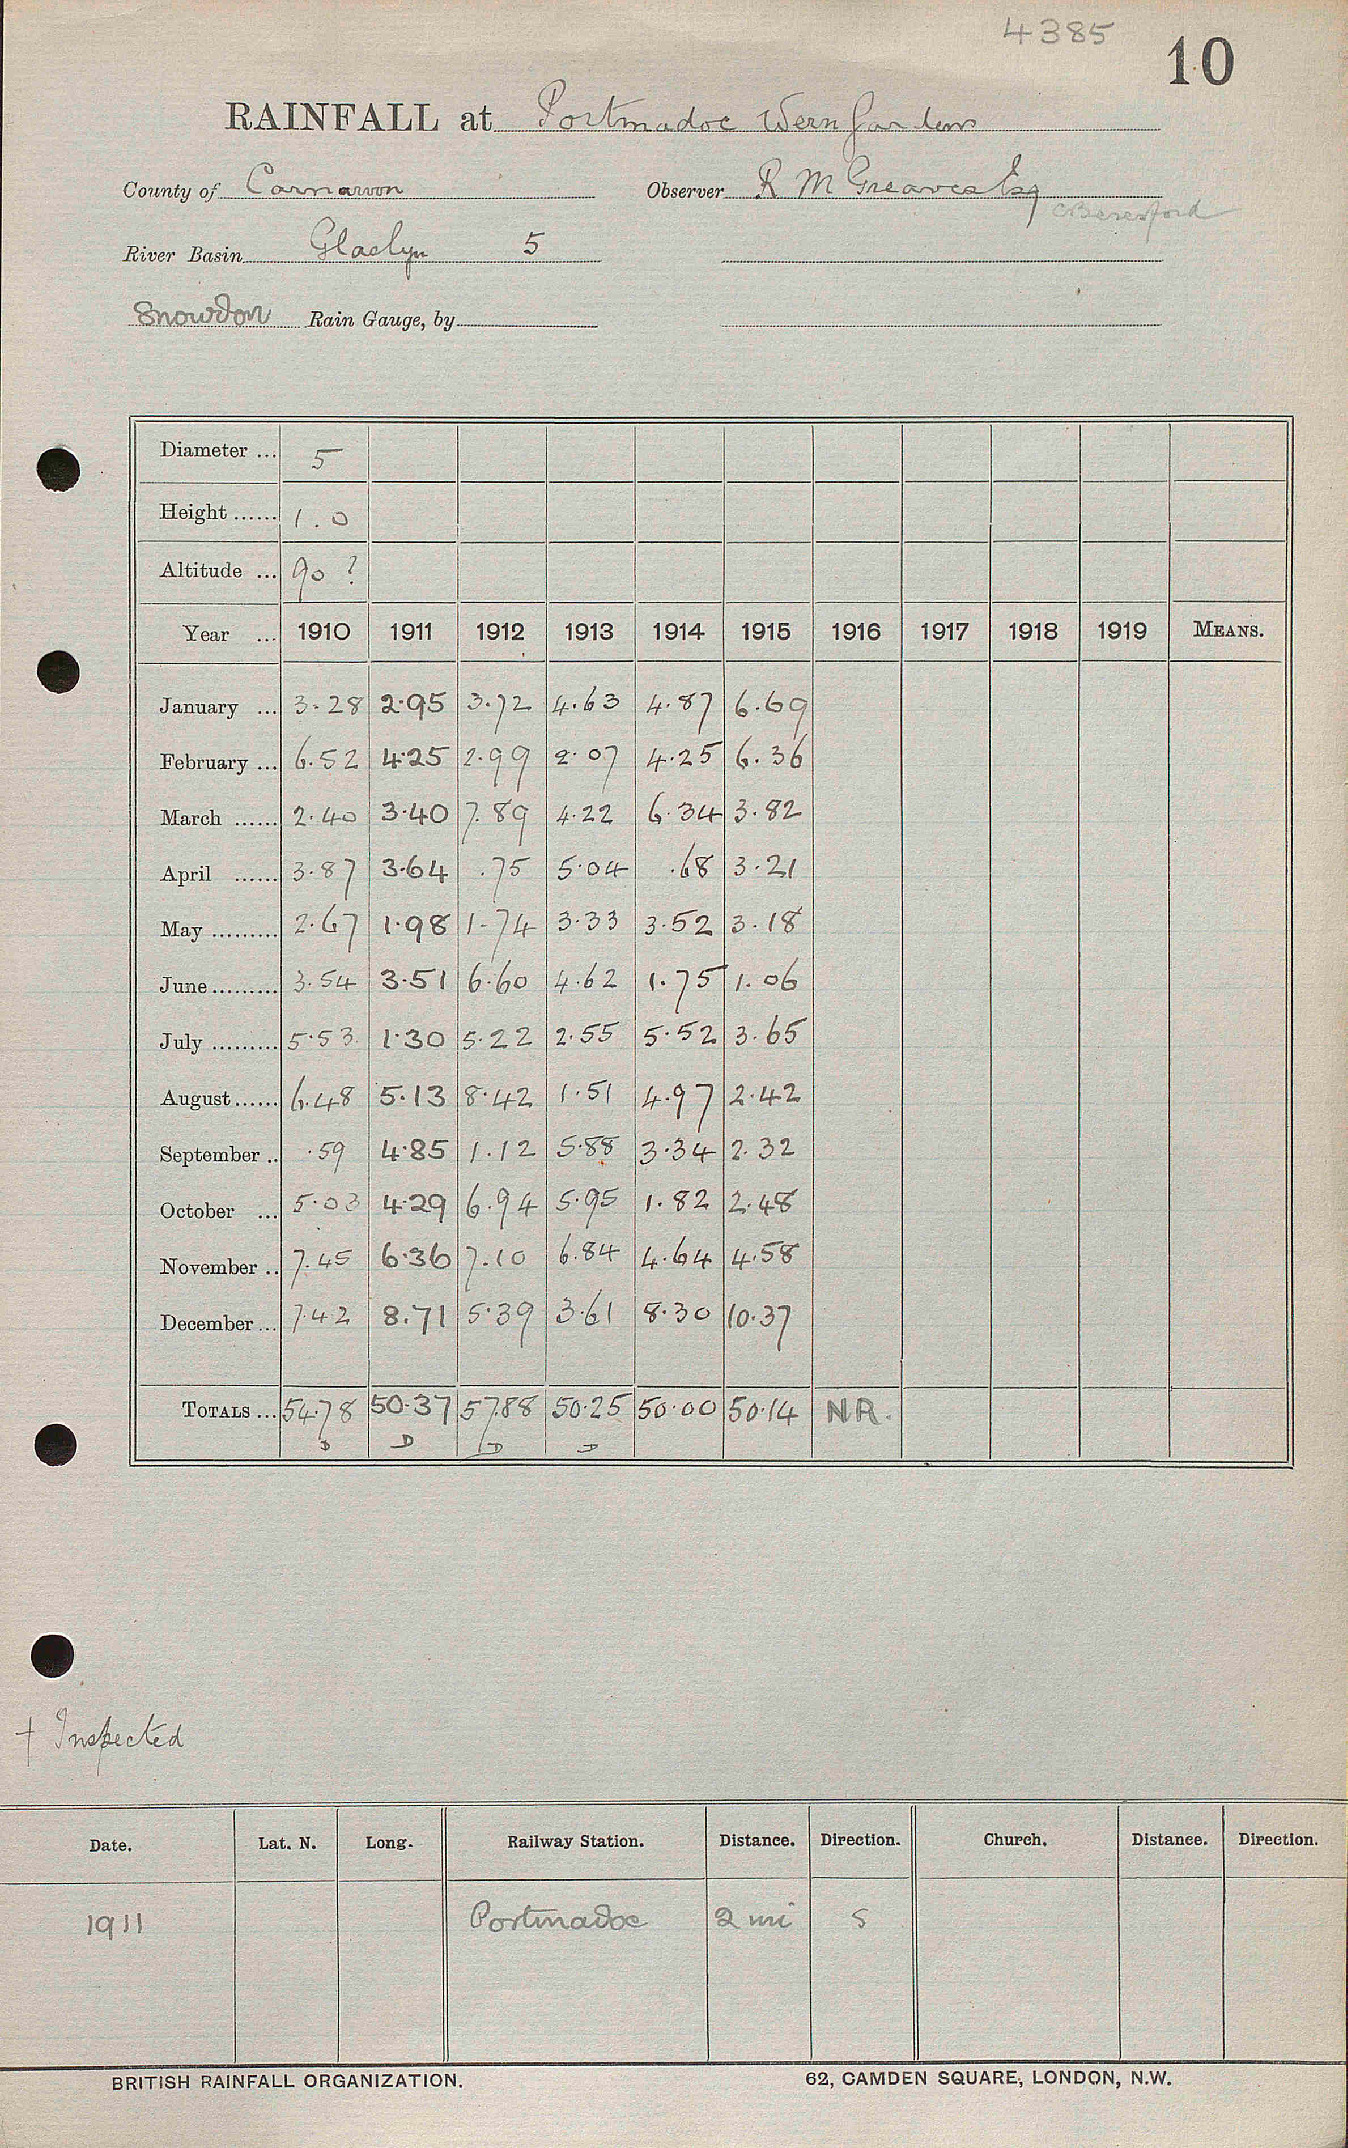 4385
10
RAINFALL at Portmadoc Wern Gardens
County of Carnarvon Observer R M Greaves Esq
C Beresford
River Basin Glaslyn 5
Snowdon Rain Gauge, by
Diameter ... 5
Height ...... 1.0
Altitude ... 90 ?
Year ... 1910 1911 1912 1913 1914 1915 1916 1917 1918 1919 MEANS.
January ... 3.28 2.95 3.72 4.63 4.87 6.69
February ... 6.52 4.25 2.99 2.07 4.25 6.36
March ...... 2.40 3.40 7.89 4.22 6.34 3.82
April ...... 3.87 3.64 .75 5.04 .68 3.21
May ......... 2.67 1.98 1.74 3.33 3.52 3.18
June ......... 3.54 3.51 6.60 4.62 1.75 1.06
July ......... 5.53 1.30 5.22 2.55 5.52 3.65
August ...... 6.48 5.13 8.42 1.51 4.97 2.42
September .. .59 4.85 1.12 5.88 3.34 2.32
October ... 5.03 4.29 6.94 5.95 1.82 2.48
November .. 7.45 6.36 7.10 6.84 4.64 4.58
December ... 7.42 8.71 5.39 3.61 8.30 10.37
TOTALS ... 54.78 50.37 57.88 50.25 50.00 50.14 N.R.
D D D D
† Inspected
Date. Lat. N. Long. Railway Station. Distance. Direction. Church. Distance. Direction.
1911 Portmadoc 2 mi S
BRITISH RAINFALL ORGANIZATION. 62, CAMDEN SQUARE, LONDON, N.W.